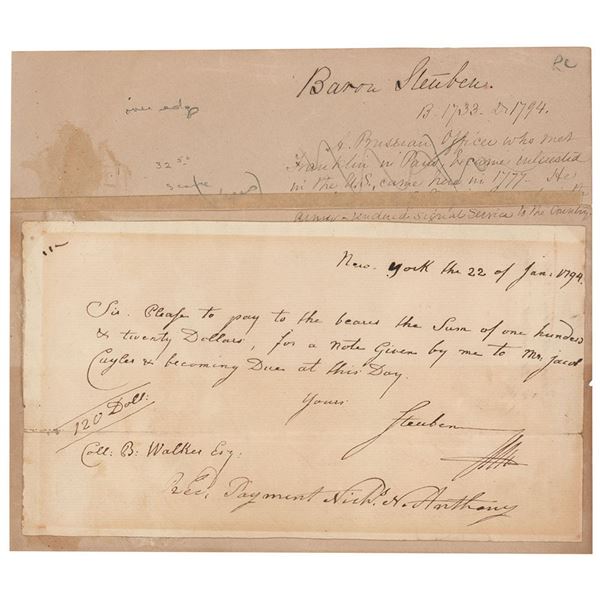 Baron Steuben.
B. 1733. D 1794.
A Prussian Officer who met
Franklin in Paris became interested
in the U.S. came here in 1777. He
army - rendered signal service to the Country.
New. York the 22 of Jan: 1794.
Sir. Please to pay to the bearer the Sum of one hundred
& twenty Dollars, for a Note Given by me to Mr. Jacob
Cuyler & becoming Due at this Day.
Yours
Steuben
120 Doll:
Coll: B: Walker Esq:
Rec'd. Payment Nich's. N. Anthony